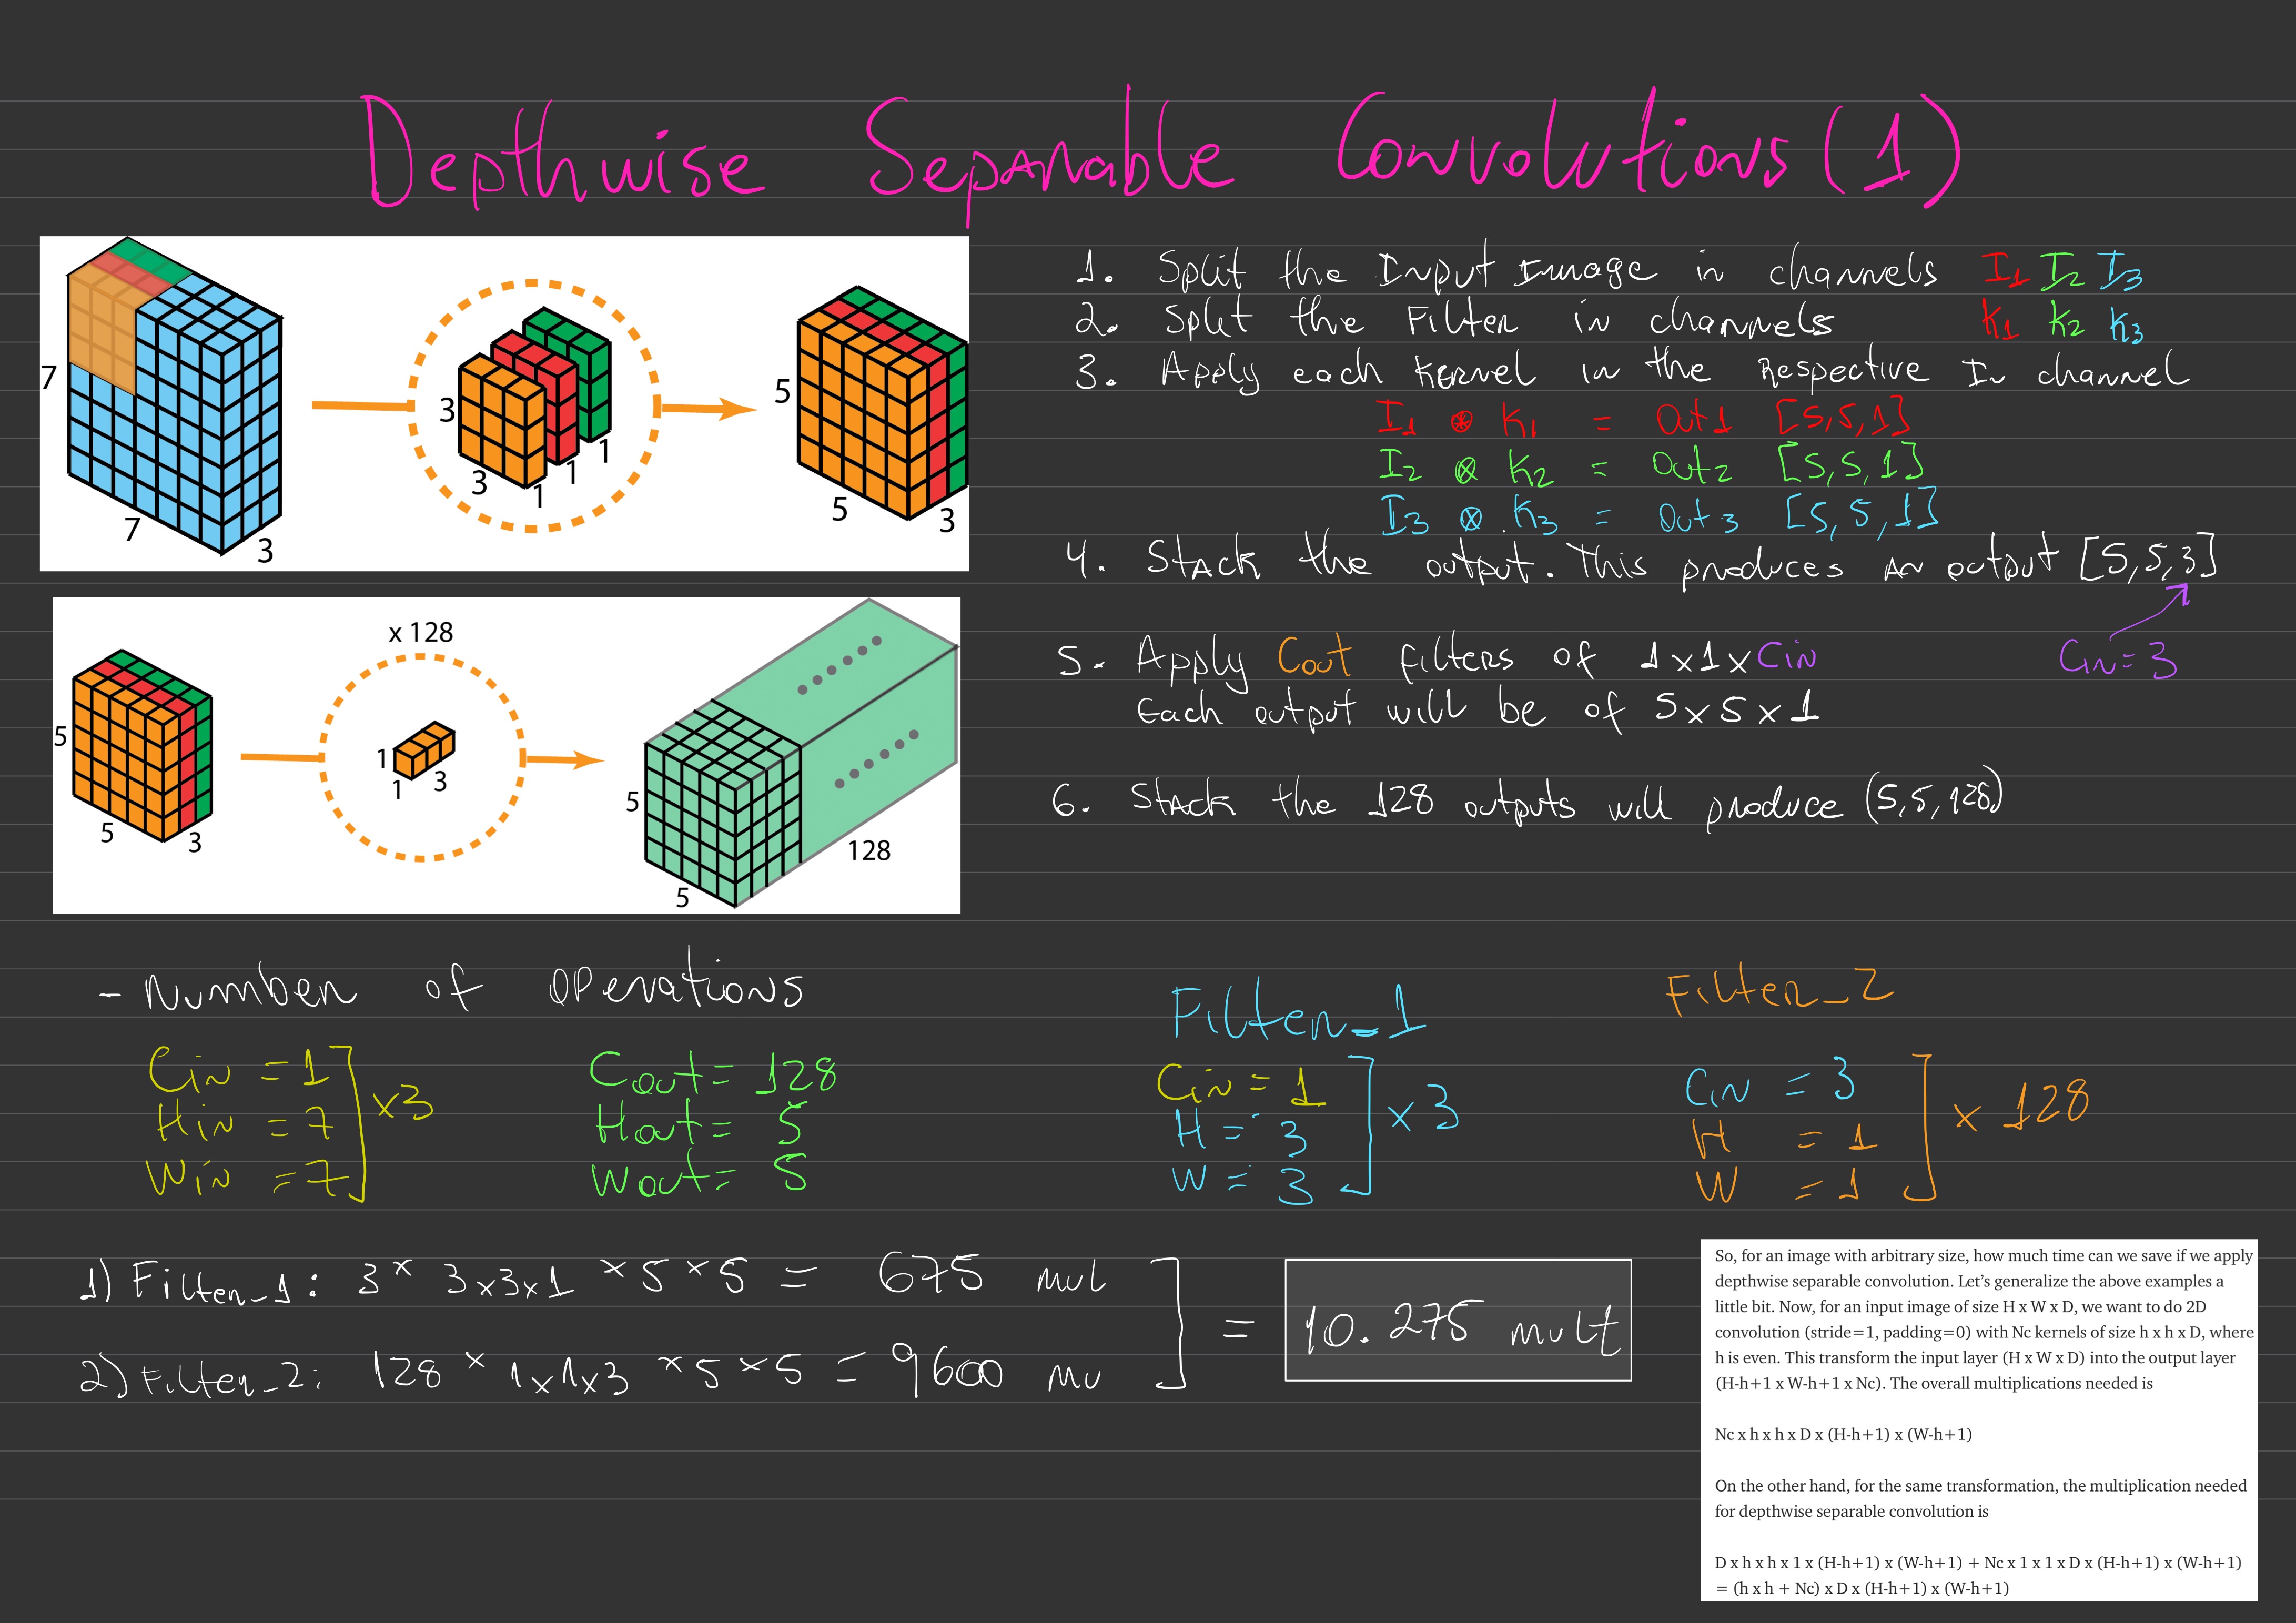 Depthwise Separable Convolutions (1)
7
7
3
3
3
1
1
1
5
5
3
1. Split the Input Image in channels I1 I2 I3
2. Split the Filter in channels K1 K2 K3
3. Apply each kernel in the Respective In channel
I1 ⊛ K1 = Out1 [5,5,1]
I2 ⊗ K2 = Out2 [5,5,1]
I3 ⊗ K3 = Out3 [5,5,1]
4. Stack the output. This produces an output [5,5,3]
Cin=3
x 128
5
5
3
1
1
3
5
5
128
5. Apply Cout filters of 1x1xCin
Each output will be of 5x5x1
6. Stack the 128 outputs will produce (5,5,128)
- Number of operations
Cin = 1
Hin = 7
Win = 7
x3
Cout = 128
Hout = 5
Wout = 5
Filter_1
Cin = 1
H = 3
W = 3
x 3
Filter_2
Cin = 3
H = 1
W = 1
x 128
1) Filter_1: 3 x 3x3x1 x 5 x 5 = 675 mul
2) Filter_2: 128 x 1x1x3 x 5 x 5 = 9600 mu
= 10.275 mult
So, for an image with arbitrary size, how much time can we save if we apply
depthwise separable convolution. Let’s generalize the above examples a
little bit. Now, for an input image of size H x W x D, we want to do 2D
convolution (stride=1, padding=0) with Nc kernels of size h x h x D, where
h is even. This transform the input layer (H x W x D) into the output layer
(H-h+1 x W-h+1 x Nc). The overall multiplications needed is
Nc x h x h x D x (H-h+1) x (W-h+1)
On the other hand, for the same transformation, the multiplication needed
for depthwise separable convolution is
D x h x h x 1 x (H-h+1) x (W-h+1) + Nc x 1 x 1 x D x (H-h+1) x (W-h+1)
= (h x h + Nc) x D x (H-h+1) x (W-h+1)